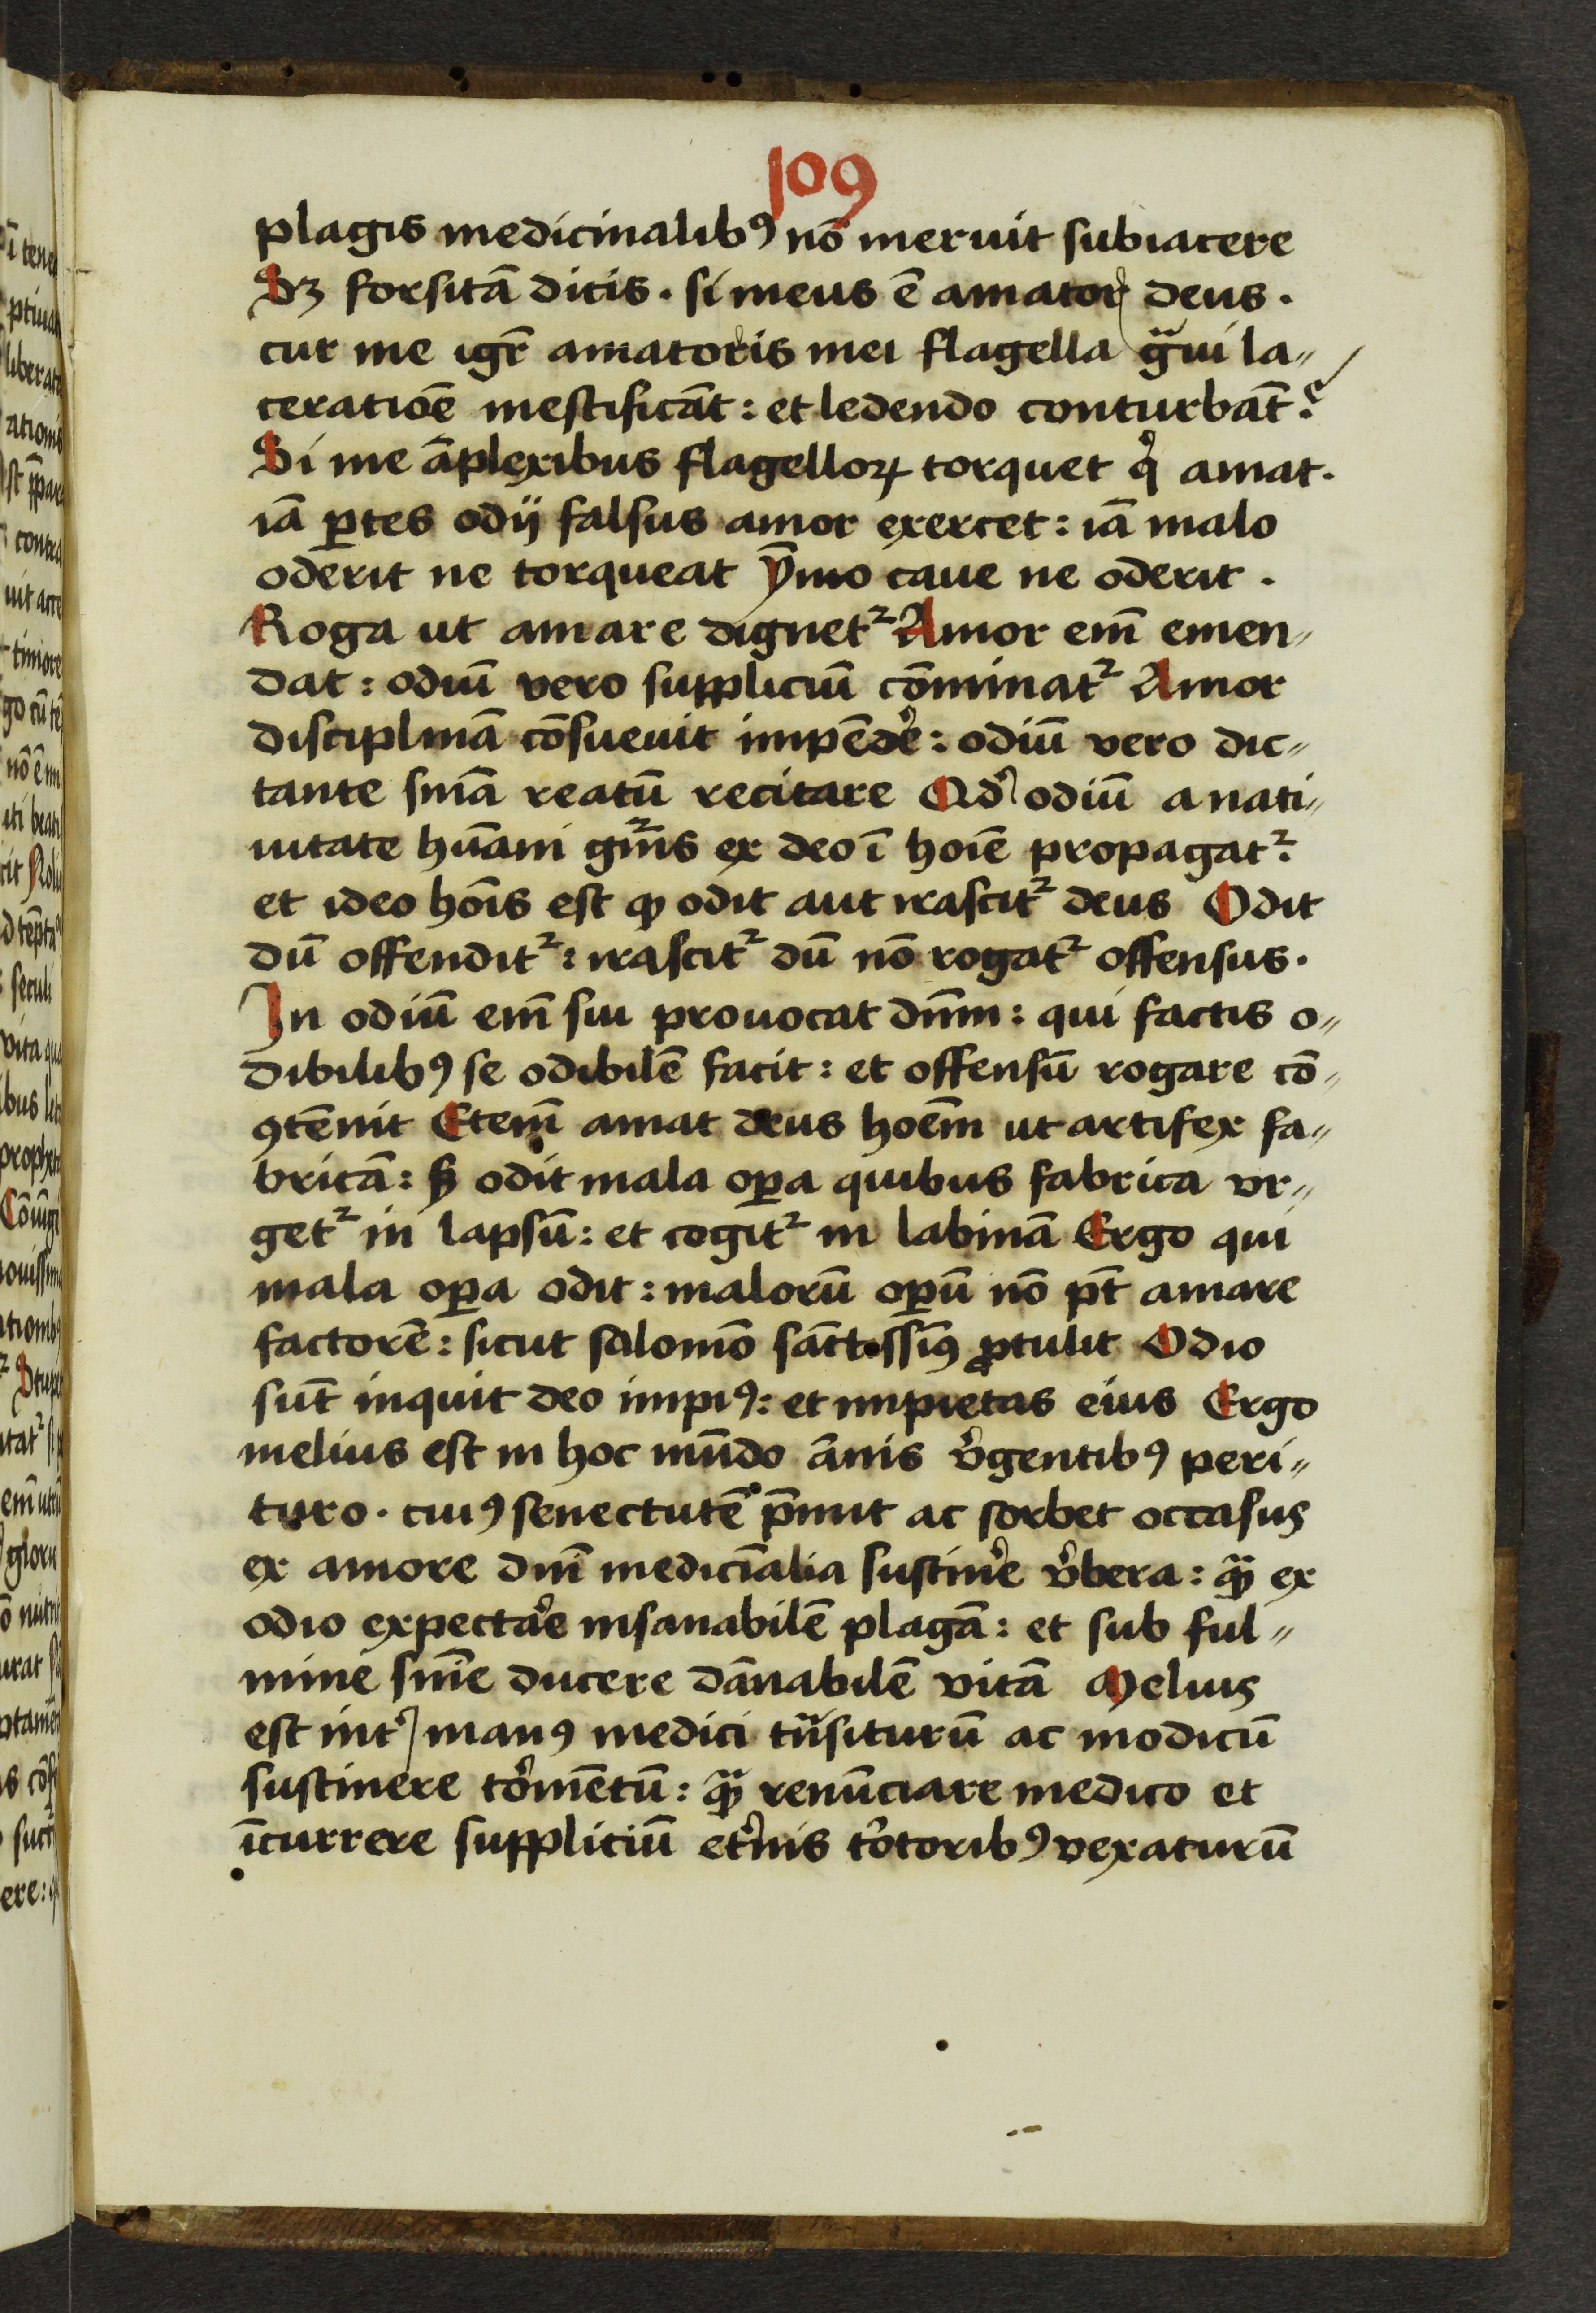 109
plagis medicinalibꝰ nō meruit subiacere
Sꝫ forsitā dicis . si meus ē amator deus .
cur me igr̄ amatoris mei flagella gͣui la〃
ceratiōe mestificāt : et ledendo conturbāt ?
Si me āplexibus flagelloꝝ torquet q̓ amat .
iā ꝑtes odij falsus amor exercet : iā malo
oderit ne torqueat ȳmo caue ne oderit .
Roga ut amare dignet᷑ Amor em̄ emen〃
dat : odiū vero suppliciū cōminat᷑ Amor
disciplinā cōsueuit impēde̓ : odiū vero dic〃
tante sn̄iā reatū recitare Qd̓ odiū a nati〃
uitate hūani gn̄is ex deo ī hoīe propagat᷑ .
et ideo hōis est ꝙ odit aut irascit᷑ deus Odit
dū offendit᷑ : irascit᷑ dū nō rogat᷑ offensus .
In odiū em̄ sui prouocat dn̄m : qui factis o〃
dibilibꝰ se odibilē facit : et offensū rogare cō〃
ꝯtēnit Etem̄ amat deus hoēm ut artifex fa〃
bricā : sꝫ odit mala oꝑa quibus fabrica vr〃
get᷑ in lapsū : et cogit᷑ in labinā Ergo qui
mala oꝑa odit : malorū oꝑū nō pt̄ amare
factorē : sicut salomō sāctissīꝰ ꝓtulit Odio
sūt inquit deo impiꝰ : et impietas eius Ergo
melius est in hoc mūdo ānis v̓gentibꝰ peri〃
turo . cuiꝰ senectutē p̄mit ac sorbet occasus
ex amore dn̄i medicīalia sustine̓ v̓bera : qͣꝫ ex
odio expecta̓e insanabilē plagā : et sub ful〃
mine sn̄ie ducere dānabilē vitā Melius
est int̓ manꝰ medici tͣnsiturū ac modicū
sustinere to̓mētū : qͣꝫ renūciare medico et
īcurrere suppliciū et̓nis to̓toribꝰ vexaturū